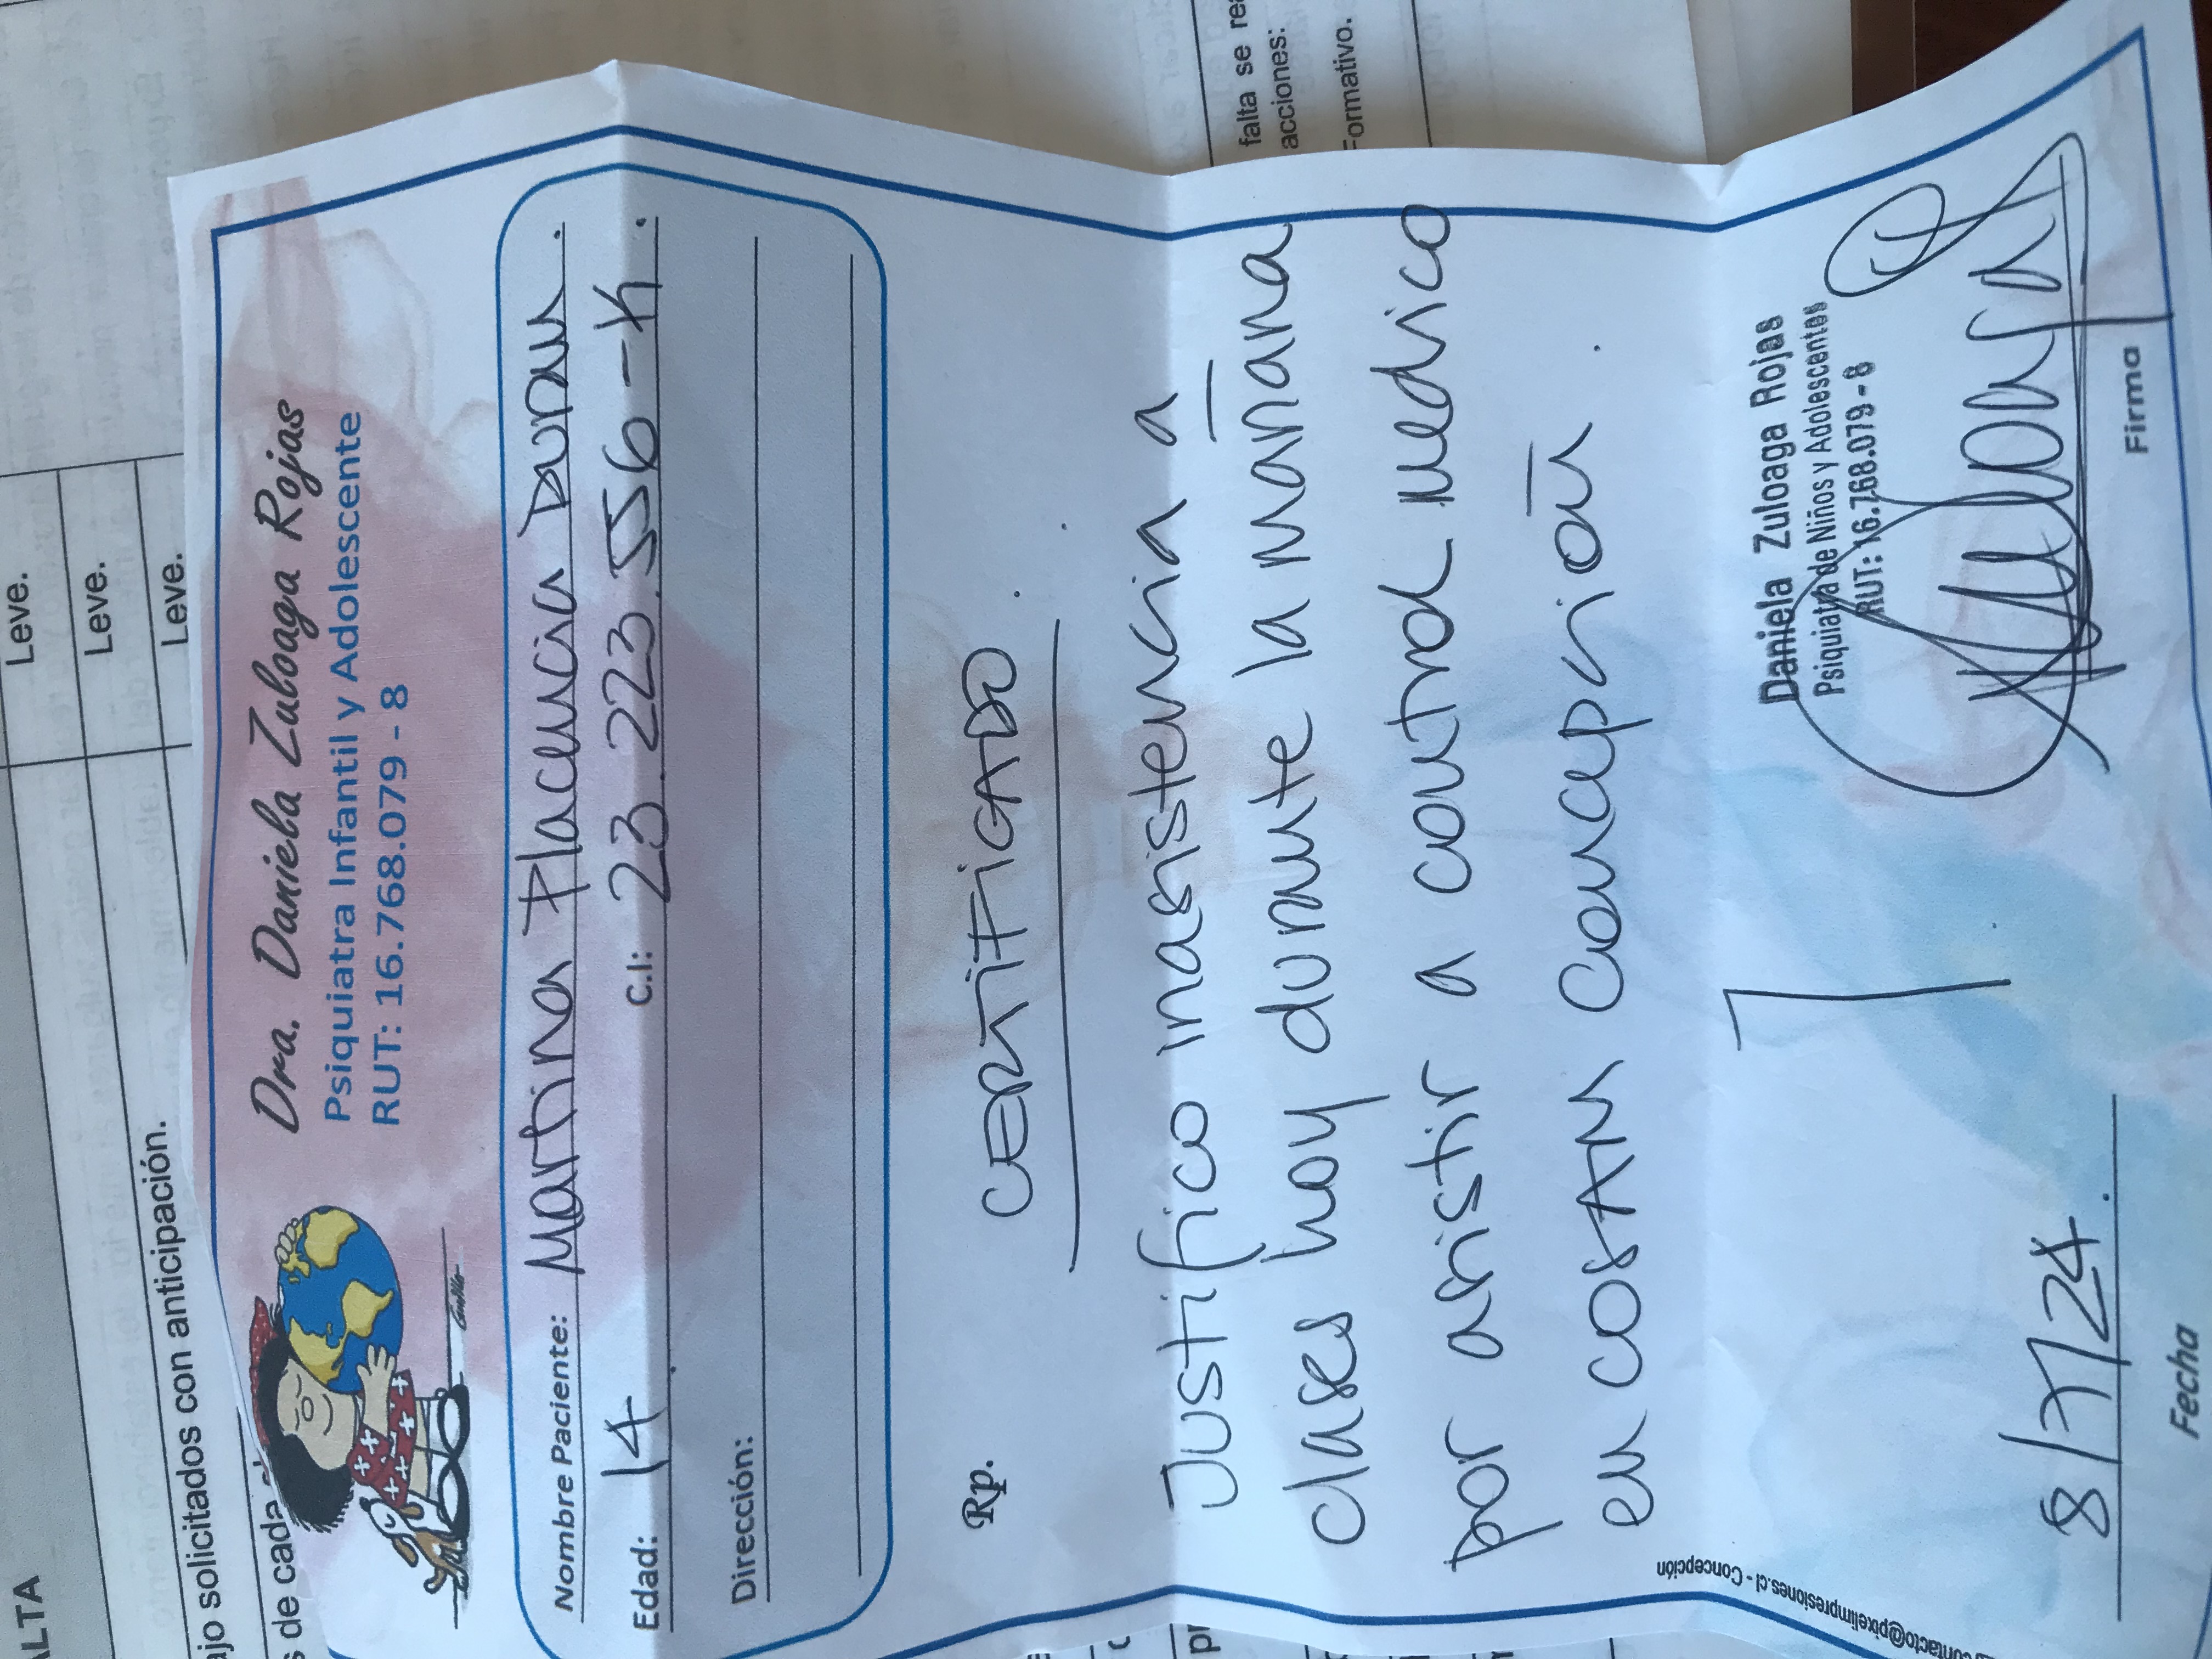 ALTA
Leve.
Leve.
ajo solicitados con anticipación.
Leve.
s de cada
falta se rea
acciones:
Formativo.
Dra. Daniela Zuloaga Rojas
Psiquiatra Infantil y Adolescente
RUT: 16.768.079 - 8
Nombre Paciente: Martina Placencia Duran.
Edad: 14 C.I: 23.223.556-K.
Dirección:
Rp.
CERTIFICADO.
Justifico inasistencia a
clases hoy durante la mañana
por asistir a control medico
en COSAM Concepción.
Daniela Zuloaga Rojas
Psiquiatra de Niños y Adolescentes
RUT: 16.768.079-8
8/7/24.
Fecha
Firma
contacto@pixelimpresiones.cl - Concepción